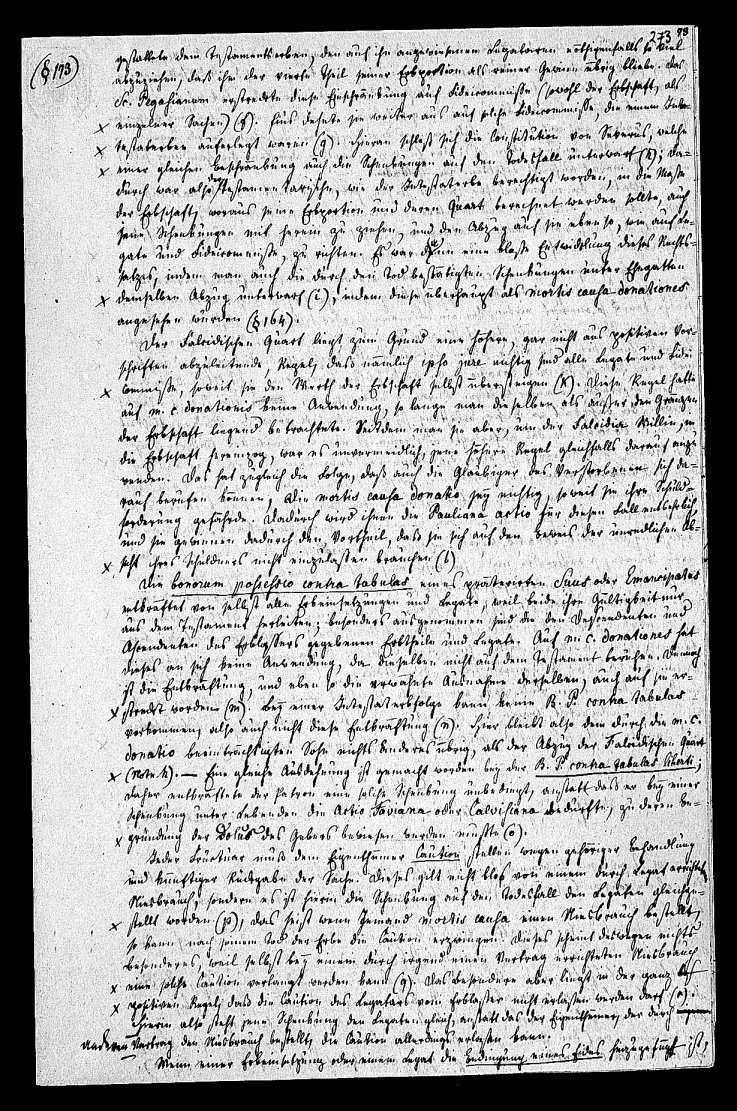 273 98
(§ 173)
gestattete dem Testamentserben, den auf ihn angewiesenen Legataren nöthigenfalls so viel
abzuziehen, daß ihm der vierte Theil seiner Erbportion als reiner Gewinn übrig bliebe. Das
Sc. Pegasianum erstreckte diese Einschränkung auf Fideicommisse (sowohl der Erbschaft, als
einzelner Sachen) (f). Pius dehnte sie weiter aus auf solche Fideicommisse, die einem Inte-
staterben auferlegt waren (g). Hieran schloß sich die Constitution von Severus, welche
einer gleichen Beschränkung auch die Schenkungen auf den Todesfall unterwarf (h); da-
durch war also der testamentarische, wie der Intestaterbe berechtigt worden, in die Masse
der Erbschaft, woraus seine Erbportion und deren Quart berechnet werden sollte, auch
jene Schenkungen mit herein zu ziehen, und den Abzug auf sie eben so, wie auf Le-
gate und Fideicommisse, zu richten. Es war dann eine bloße Entwicklung dieses Rechts-
satzes, indem man auch die durch den Tod bestätigten Schenkungen unter Ehegatten
demselben Abzug unterwarf (i), indem diese überhaupt als mortis causa donationes
angesehen wurden (§ 164).
Der Falcidischen Quart liegt zum Grund eine höhere, gar nicht aus positiven Vor-
schriften abzuleitende, Regel, daß nämlich ipso jure nichtig sind alle Legate und Fidei-
commisse, soweit sie den Werth der Erbschaft selbst übersteigen (k). Diese Regel hatte
auf m. c. donationes keine Anwendung, so lange man dieselben als außer den Gränzen
der Erbschaft liegend betrachtete. Seitdem man sie aber, um der Falcidia Willen, in
die Erbschaft hereinzog, war es unvermeidlich, jene höhere Regel gleichfalls darauf anzu-
wenden. Das hat zugleich die Folge, daß auch die Gläubiger des Verstorbenen sich da-
rauf berufen können, die mortis causa donatio sey nichtig, soweit sie ihre Schuld-
forderung gefährde. Dadurch wird ihnen die Pauliana actio für diesen Fall entbehrlich,
und sie gewinnen dadurch den Vortheil, daß sie sich auf den Beweis der unredlichen Ab-
sicht ihres Schuldners nicht einzulassen brauchen (l).
Die bonorum possessio contra tabulas eines präterirten Suus oder Emancipatus
entkräftet von selbst alle Erbeinsetzungen und Legate, weil beide ihre Gültigkeit nur
aus dem Testament herleiten; besonders ausgenommen sind die den Descendenten und
Ascendenten des Erblassers gegebenen Erbtheile und Legate. Auf m. c. donationes hat
dieses an sich keine Anwendung, da dieselben nicht auf dem Testament beruhen. Dennoch
ist die Entkräftung, und eben so die erwähnte Ausnahme derselben, auch auf sie er-
streckt worden (m). Bey einer Intestaterbfolge kann keine B. P. contra tabulas
vorkommen, also auch nicht diese Entkräftung (n). Hier bleibt also dem durch die m. c.
donatio beeinträchtigten Sohn nichts Anderes übrig, als der Abzug der Falcidischen Quart
(Note h). — Eine gleiche Ausdehnung ist gemacht worden bey der B. P. contra tabulas liberti;
daher entkräftete der Patron eine solche Schenkung unbedingt, anstatt daß er bey einer
Schenkung unter Lebenden die actio Faviana oder Calvisiana bedurfte, zu deren Be-
gründung der Dolus des Gebers bewiesen werden mußte (o).
Jeder Fructuar muß dem Eigenthümer Caution stellen wegen gehöriger Behandlung
und künftiger Rückgabe der Sache. Dieses gilt nicht blos von einem durch Legat errichteten
Niesbrauch, sondern es ist hierin die Schenkung auf den Todesfall den Legaten gleichge-
stellt worden (p), das heißt wenn Jemand mortis causa einen Niesbrauch bestellt,
so kann nach seinem Tod der Erbe die Caution erzwingen. Dieses scheint deswegen nichts
besonderes, weil selbst bey einem durch irgend einen Vertrag errichteten Niesbrauch
eine solche Caution verlangt werden kann (q). Das Besondere aber liegt in der ganz
positiven Regel, daß die Caution des Legatars vom Erblasser nicht erlassen werden darf (r).
Hierin also steht jene Schenkung den Legaten gleich, anstatt daß der Eigenthümer, der durch
anderen Vertrag den Niesbrauch bestellt, die Caution allerdings erlassen kann.
Wenn einer Erbeinsetzung oder einem Legat die Bedingung eines Eides hinzugefügt ist,